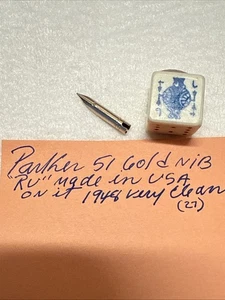 Parker 51 Gold NiB
"RU" made in USA
on it 1948 very clean
(27)